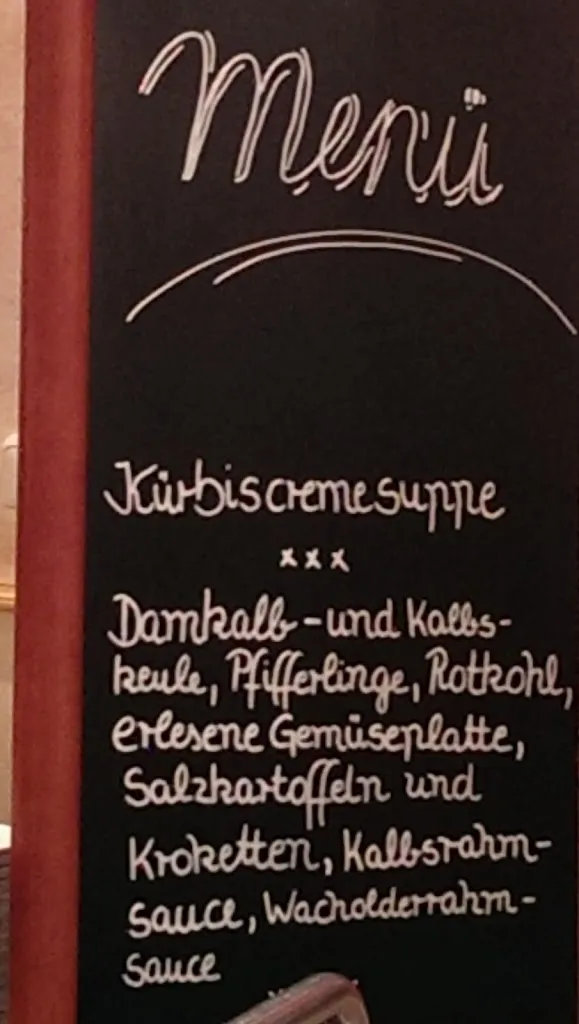 Menü
Kürbiscremesuppe
xxx
Damkalb-und Kalbs-
keule, Pfifferlinge, Rotkohl,
erlesene Gemüseplatte,
Salzkartoffeln und
Kroketten, Kalbsrahm-
sauce, Wacholderrahm-
sauce